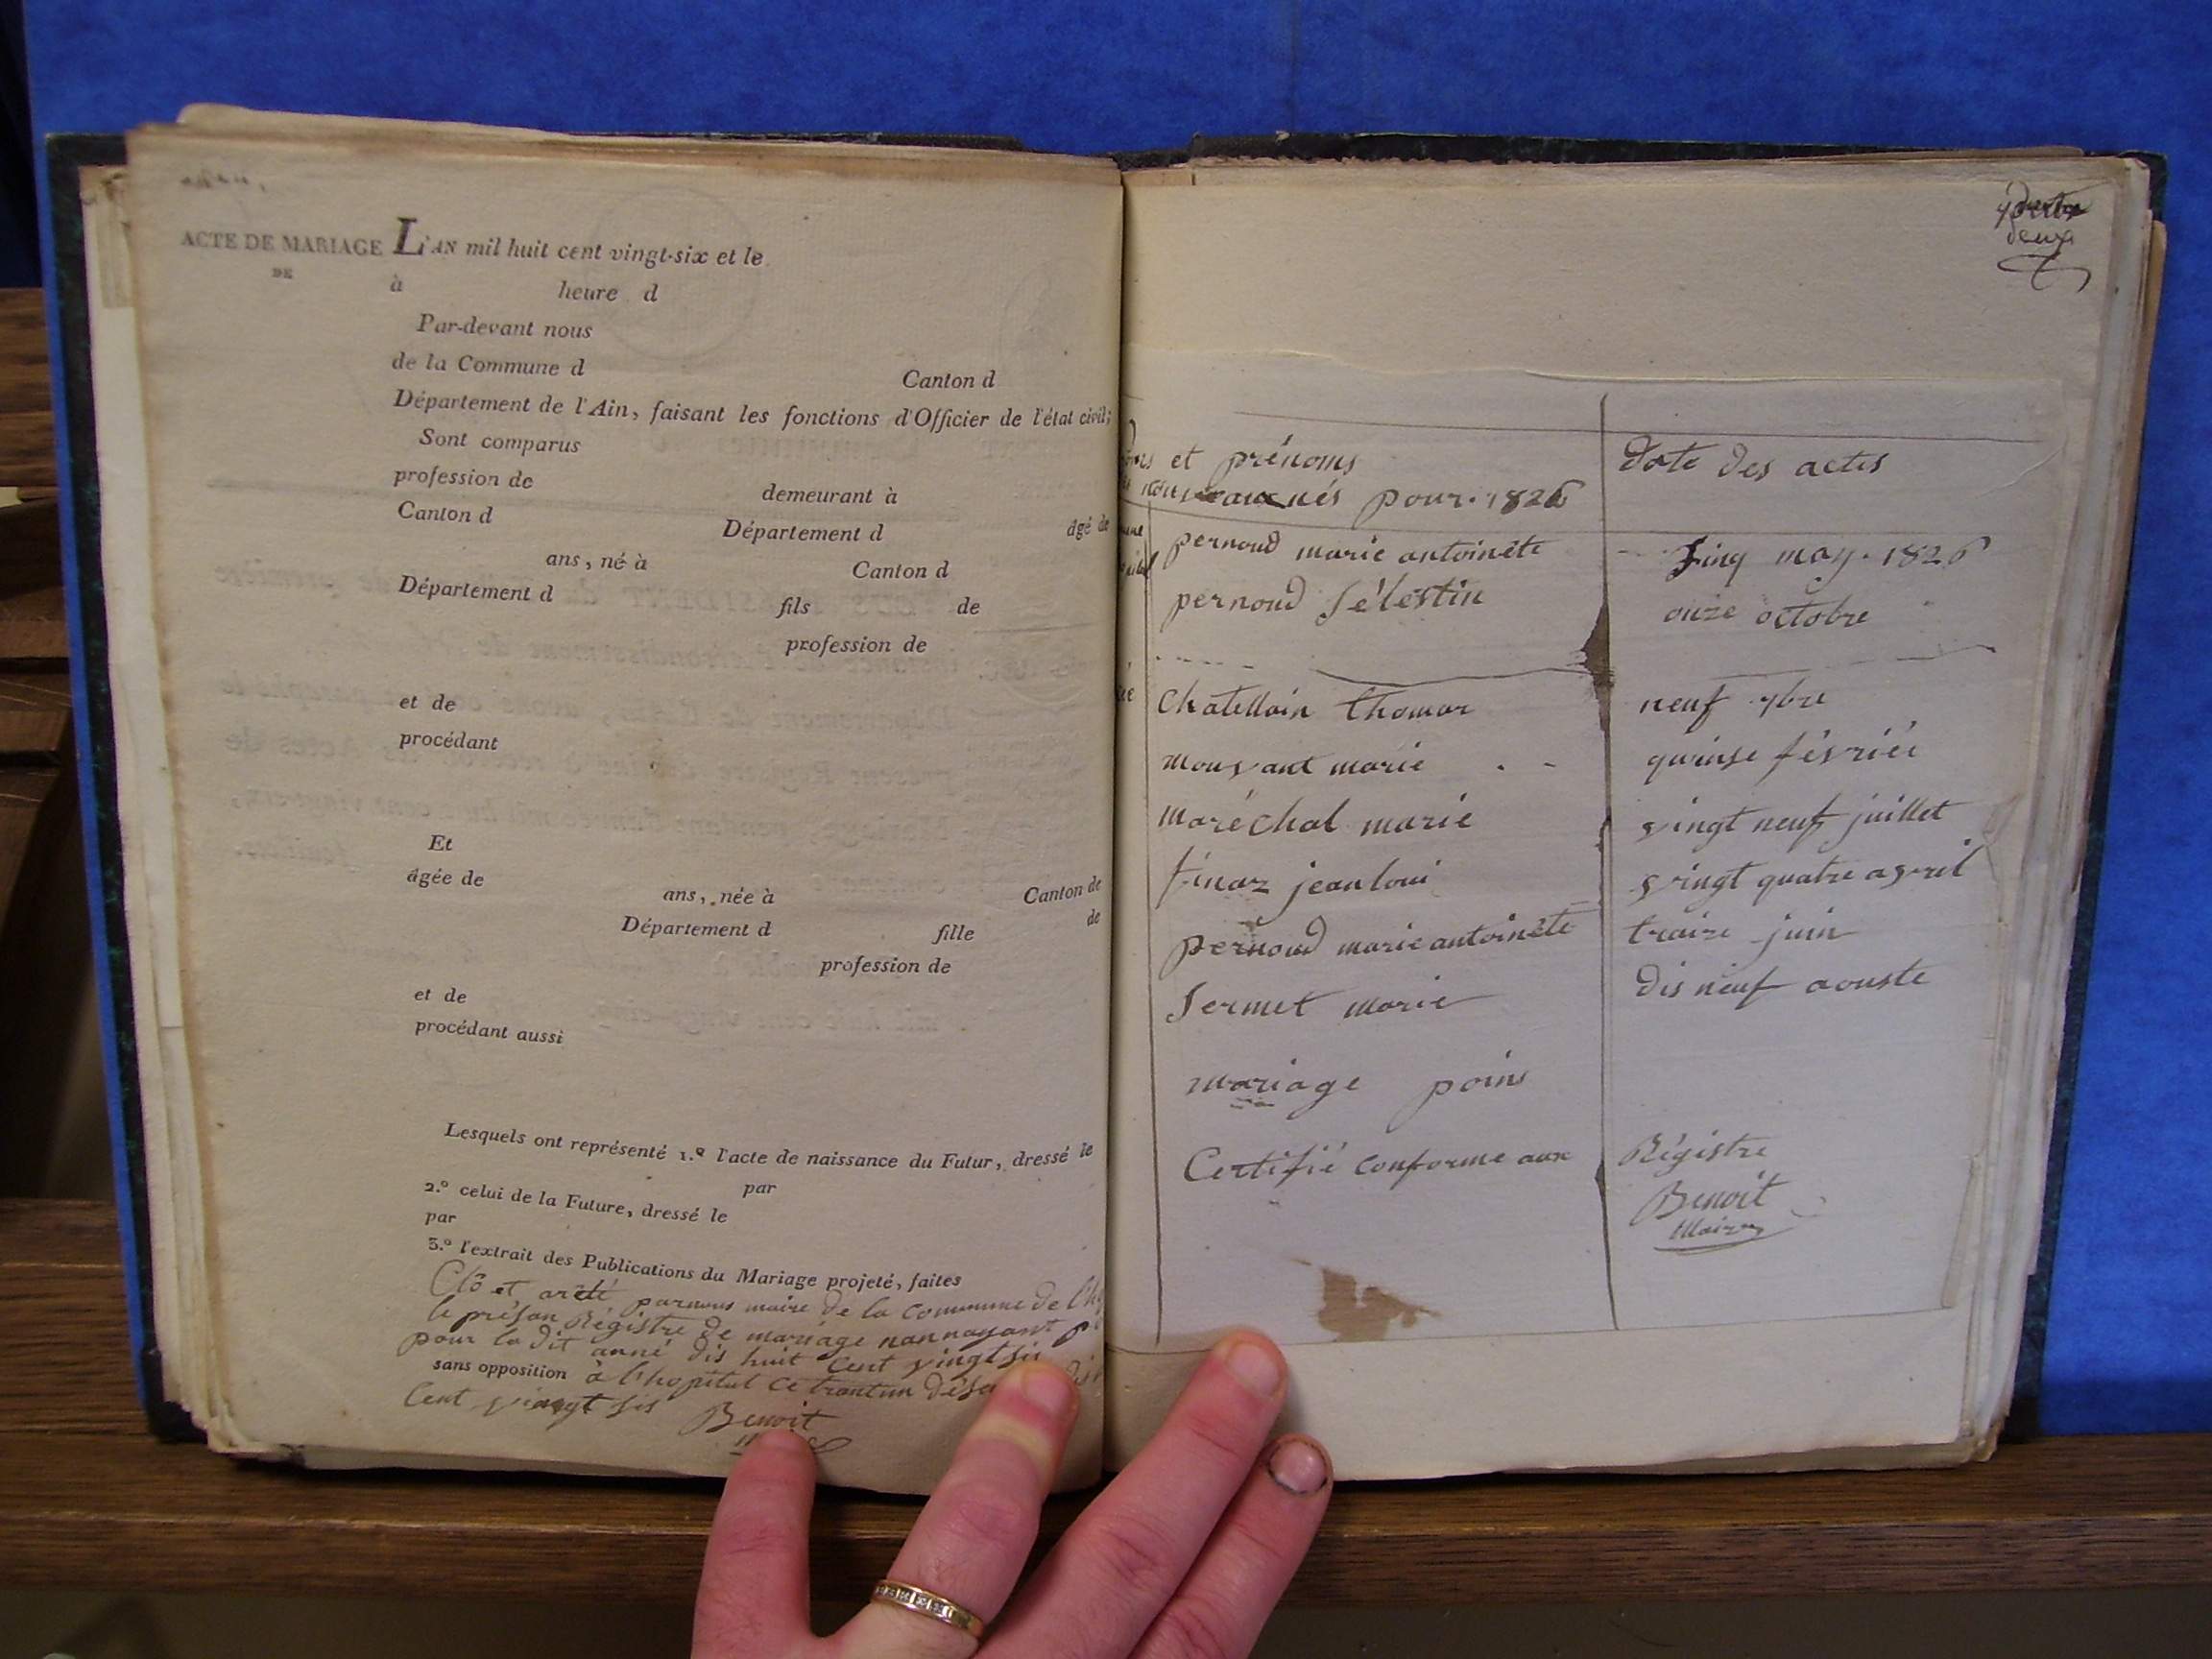 ACTE DE MARIAGE
DE
L'AN mil huit cent vingt-six et le
à heure d
Par-devant nous
de la Commune d Canton d
Département de l'Ain, faisant les fonctions d'Officier de l'état civil;
Sont comparus
profession de demeurant à
Canton d Département d âgé de
ans, né à Canton d
Département d fils de
profession de
et de
procédant
Et
âgée de ans, née à Canton de
Département d fille de
profession de
et de
procédant aussi
Lesquels ont représenté 1.º l'acte de naissance du Futur, dressé le
par
2.º celui de la Future, dressé le
par
3.º l'extrait des Publications du Mariage projeté, faites
Clô et arété parnous maire de la commune de
le présan Régistre de mariage nannayant
pour la dit anné dis huit cent vingt sis
sans opposition à l'hopital ce trantun
cent vingt sis Benoit
deux
et prénoms date des actes
nouveaux nés pour 1826
pernoud marie antoinéte sinq may 1826
pernoud sélestin onze octobre
Chatellain thomas neuf 7bre
mousant marie quinse févriéé
maréchal marie vingt neuf juillet
finaz jean loui vingt quatre avril
pernoud marie antoinéte traize juin
sermet marie dis neuf aouste
mariage poins
Certifié conforme aux Régistre
Benoit
Maire